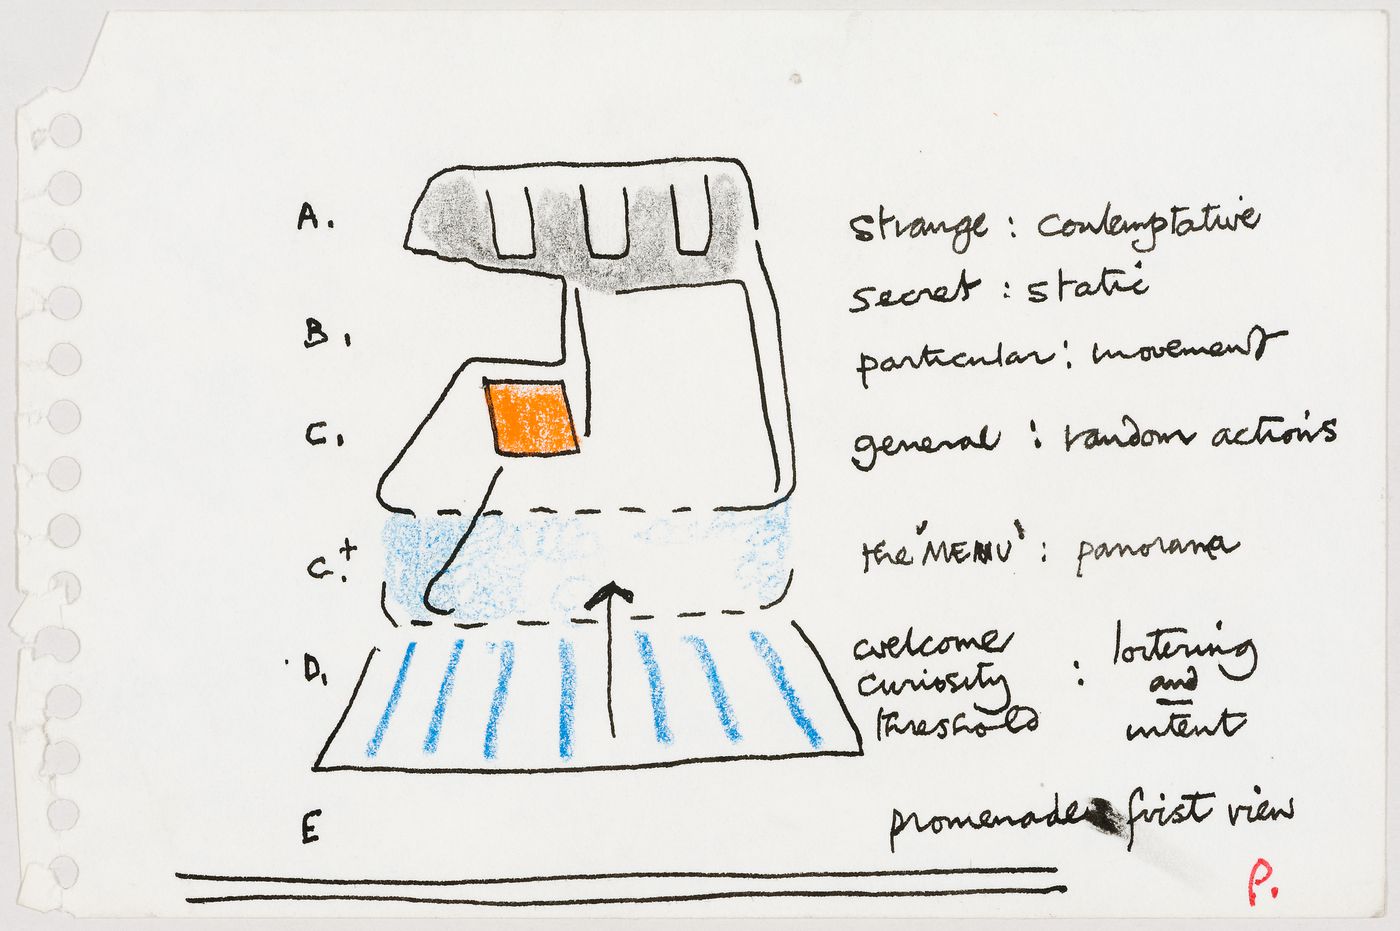 A. strange : contemptative
secret : static
B. particular : movement
C. general : random actions
C.+ the "MENU" : panorama
D. welcome curiosity threshold : loitering and intent
E promenade frist view
P.